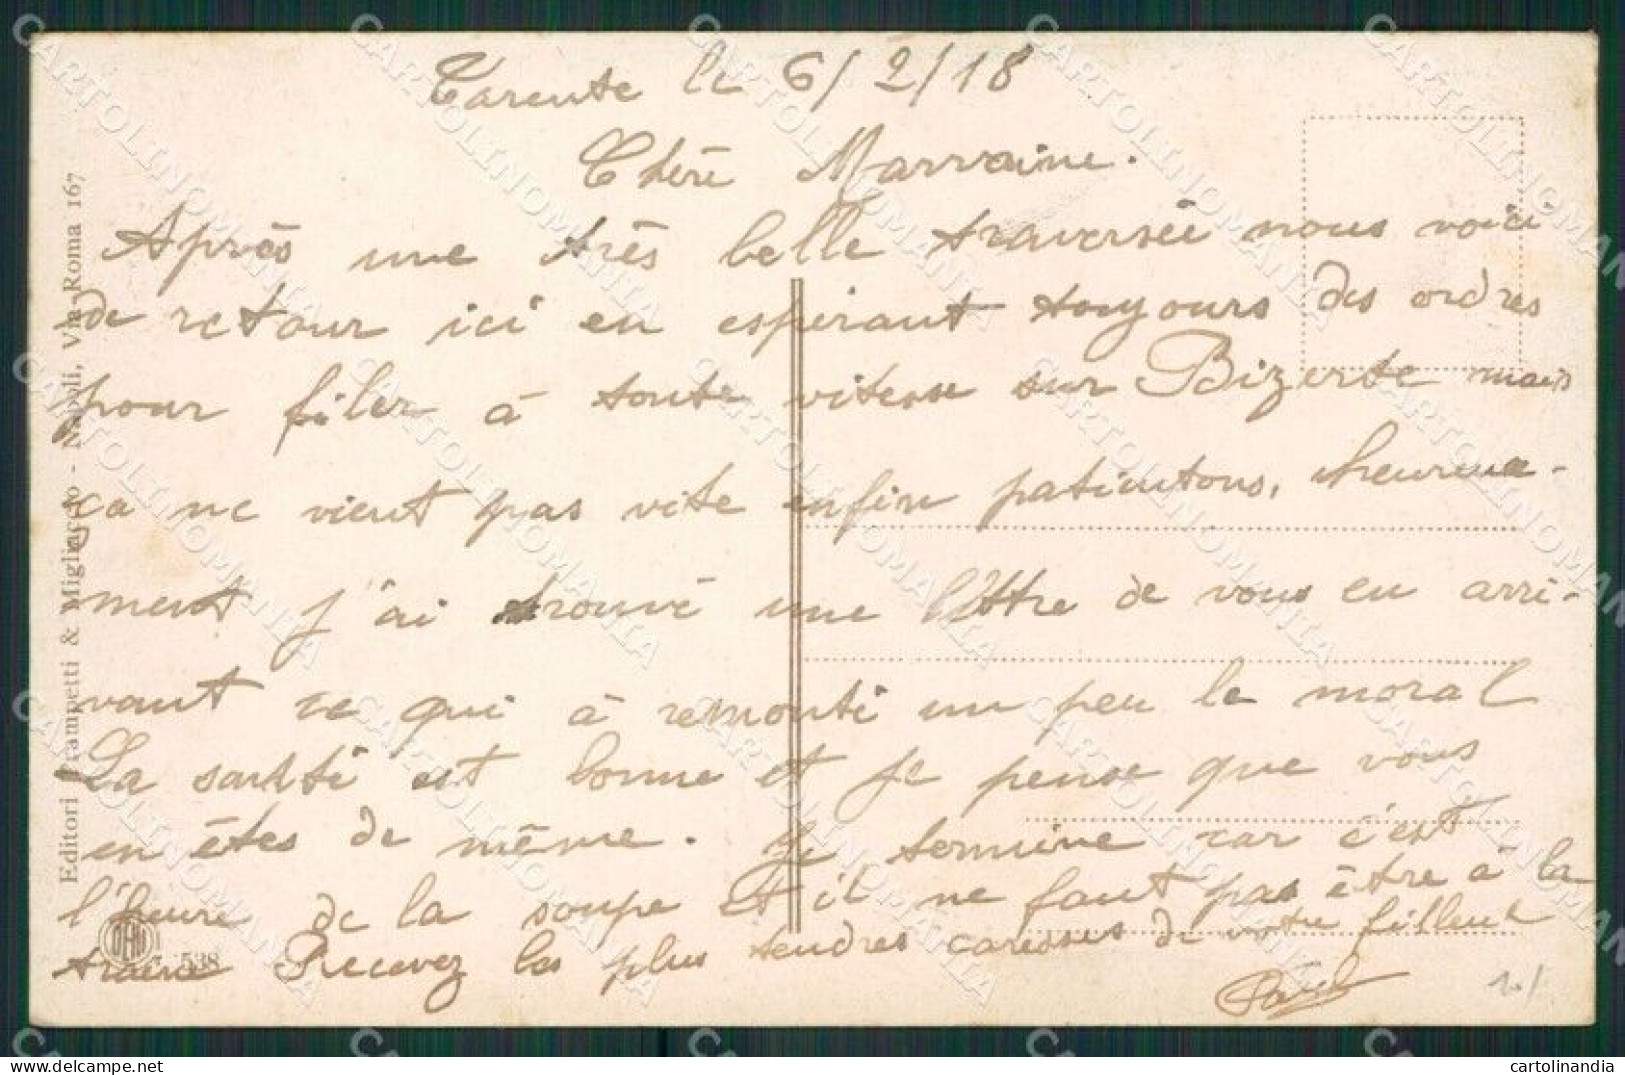 Tarente le 6/2/18
Chère Marraine.
Après une très belle traversée nous voici
de retour ici en espérant toujours des ordres
pour filer à toute vitesse sur Bizerte mais
ça ne vient pas vite enfin patientons, heureuse-
ment j'ai trouvé une lettre de vous en arri-
vant ce qui à remonté un peu le moral
La santé est bonne et je pense que vous
en êtes de même. Je termine car c'est
l'heure de la soupe et il ne faut pas être à la
traine Recevez les plus tendres caresses de votre filleul
Paul
Editori Trampetti & Migliaccio - Napoli, Via Roma 167
538
CARTOLINOMANIA
cartolinandia.it
cartolinandia